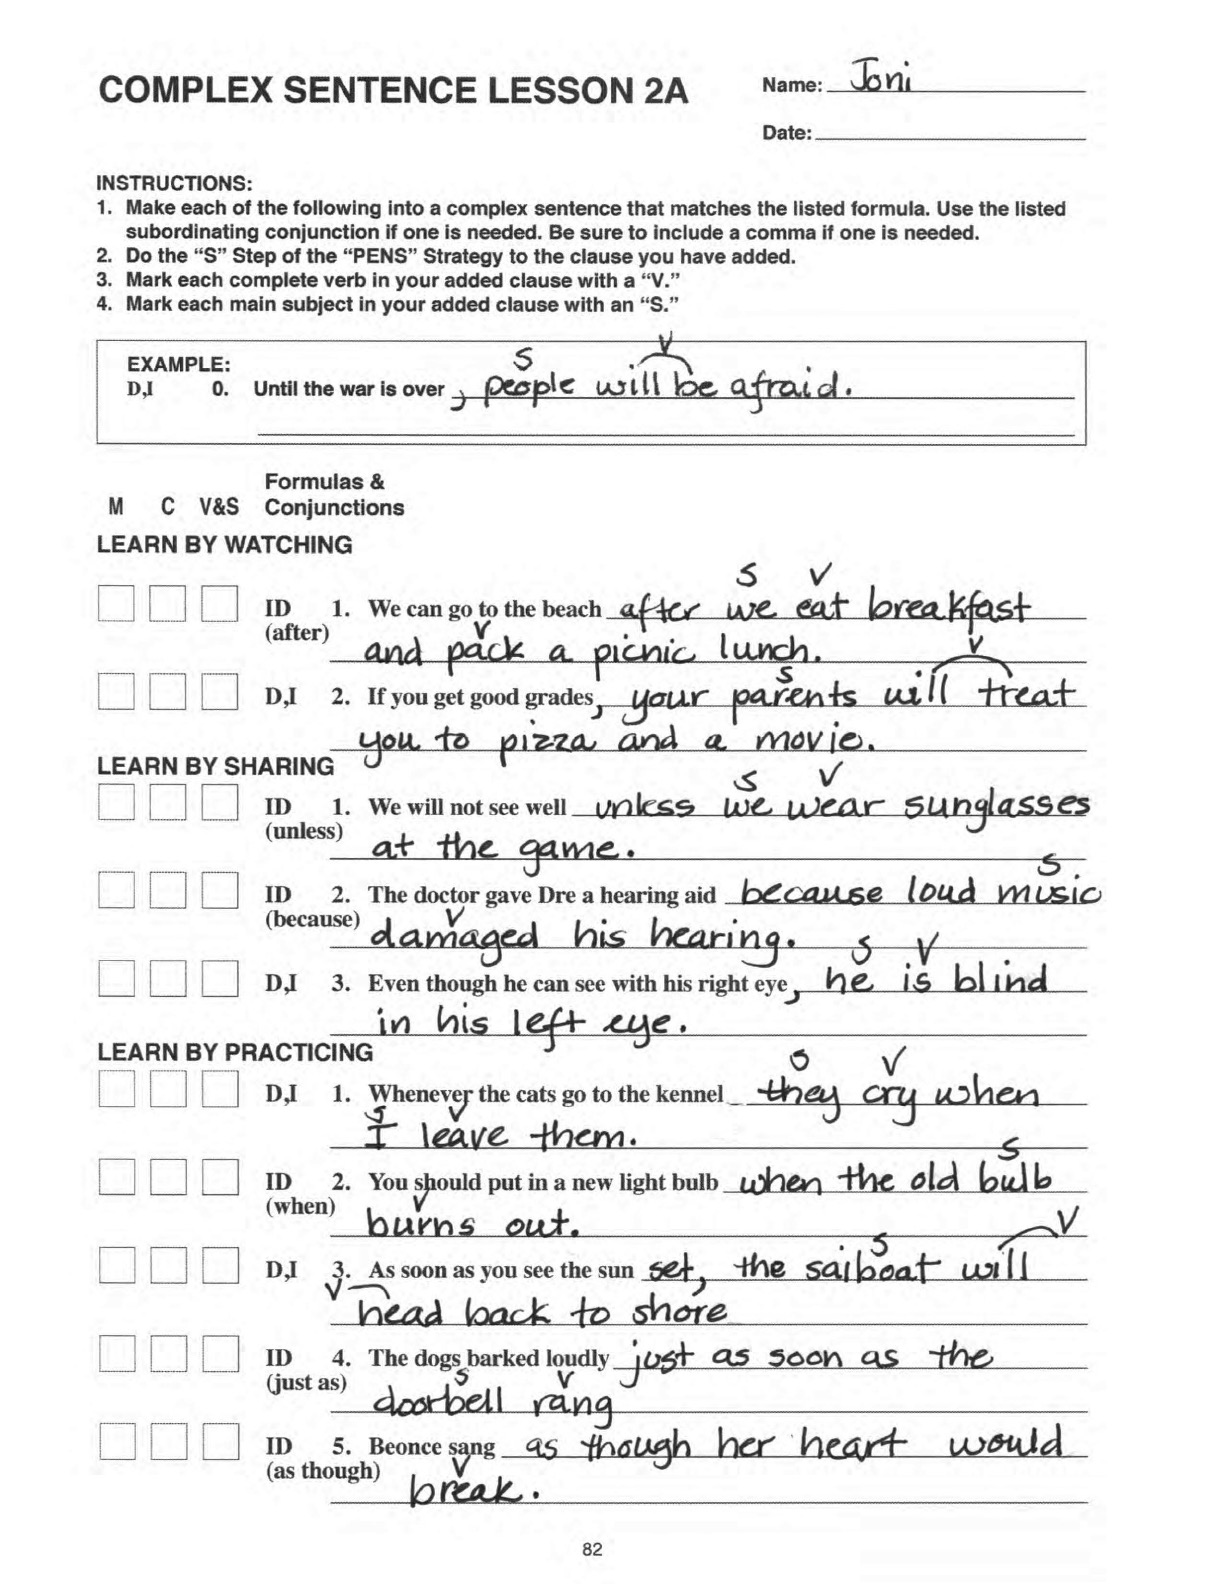 COMPLEX SENTENCE LESSON 2A
Name: Joni
Date:
INSTRUCTIONS:
1. Make each of the following into a complex sentence that matches the listed formula. Use the listed
subordinating conjunction if one is needed. Be sure to include a comma if one is needed.
2. Do the “S” Step of the “PENS” Strategy to the clause you have added.
3. Mark each complete verb in your added clause with a “V.”
4. Mark each main subject in your added clause with an “S.”
S V
EXAMPLE:
D,I 0. Until the war is over , people will be afraid.
Formulas &
M C V&S Conjunctions
LEARN BY WATCHING
S V
ID 1. We can go to the beach after we eat breakfast
(after) V
and pack a picnic lunch.
S V
D,I 2. If you get good grades, your parents will treat
you to pizza and a movie.
LEARN BY SHARING
S V
ID 1. We will not see well unless we wear sunglasses
(unless)
at the game.
S
ID 2. The doctor gave Dre a hearing aid because loud music
(because) V
damaged his hearing.
S V
D,I 3. Even though he can see with his right eye, he is blind
in his left eye.
LEARN BY PRACTICING
S V
D,I 1. Whenever the cats go to the kennel they cry when
S V
I leave them.
S
ID 2. You should put in a new light bulb when the old bulb
(when) V
burns out.
S V
D,I 3. As soon as you see the sun set, the sailboat will
V
head back to shore
ID 4. The dogs barked loudly just as soon as the
(just as) S V
doorbell rang
ID 5. Beonce sang as though her heart would
(as though) V
break.
82